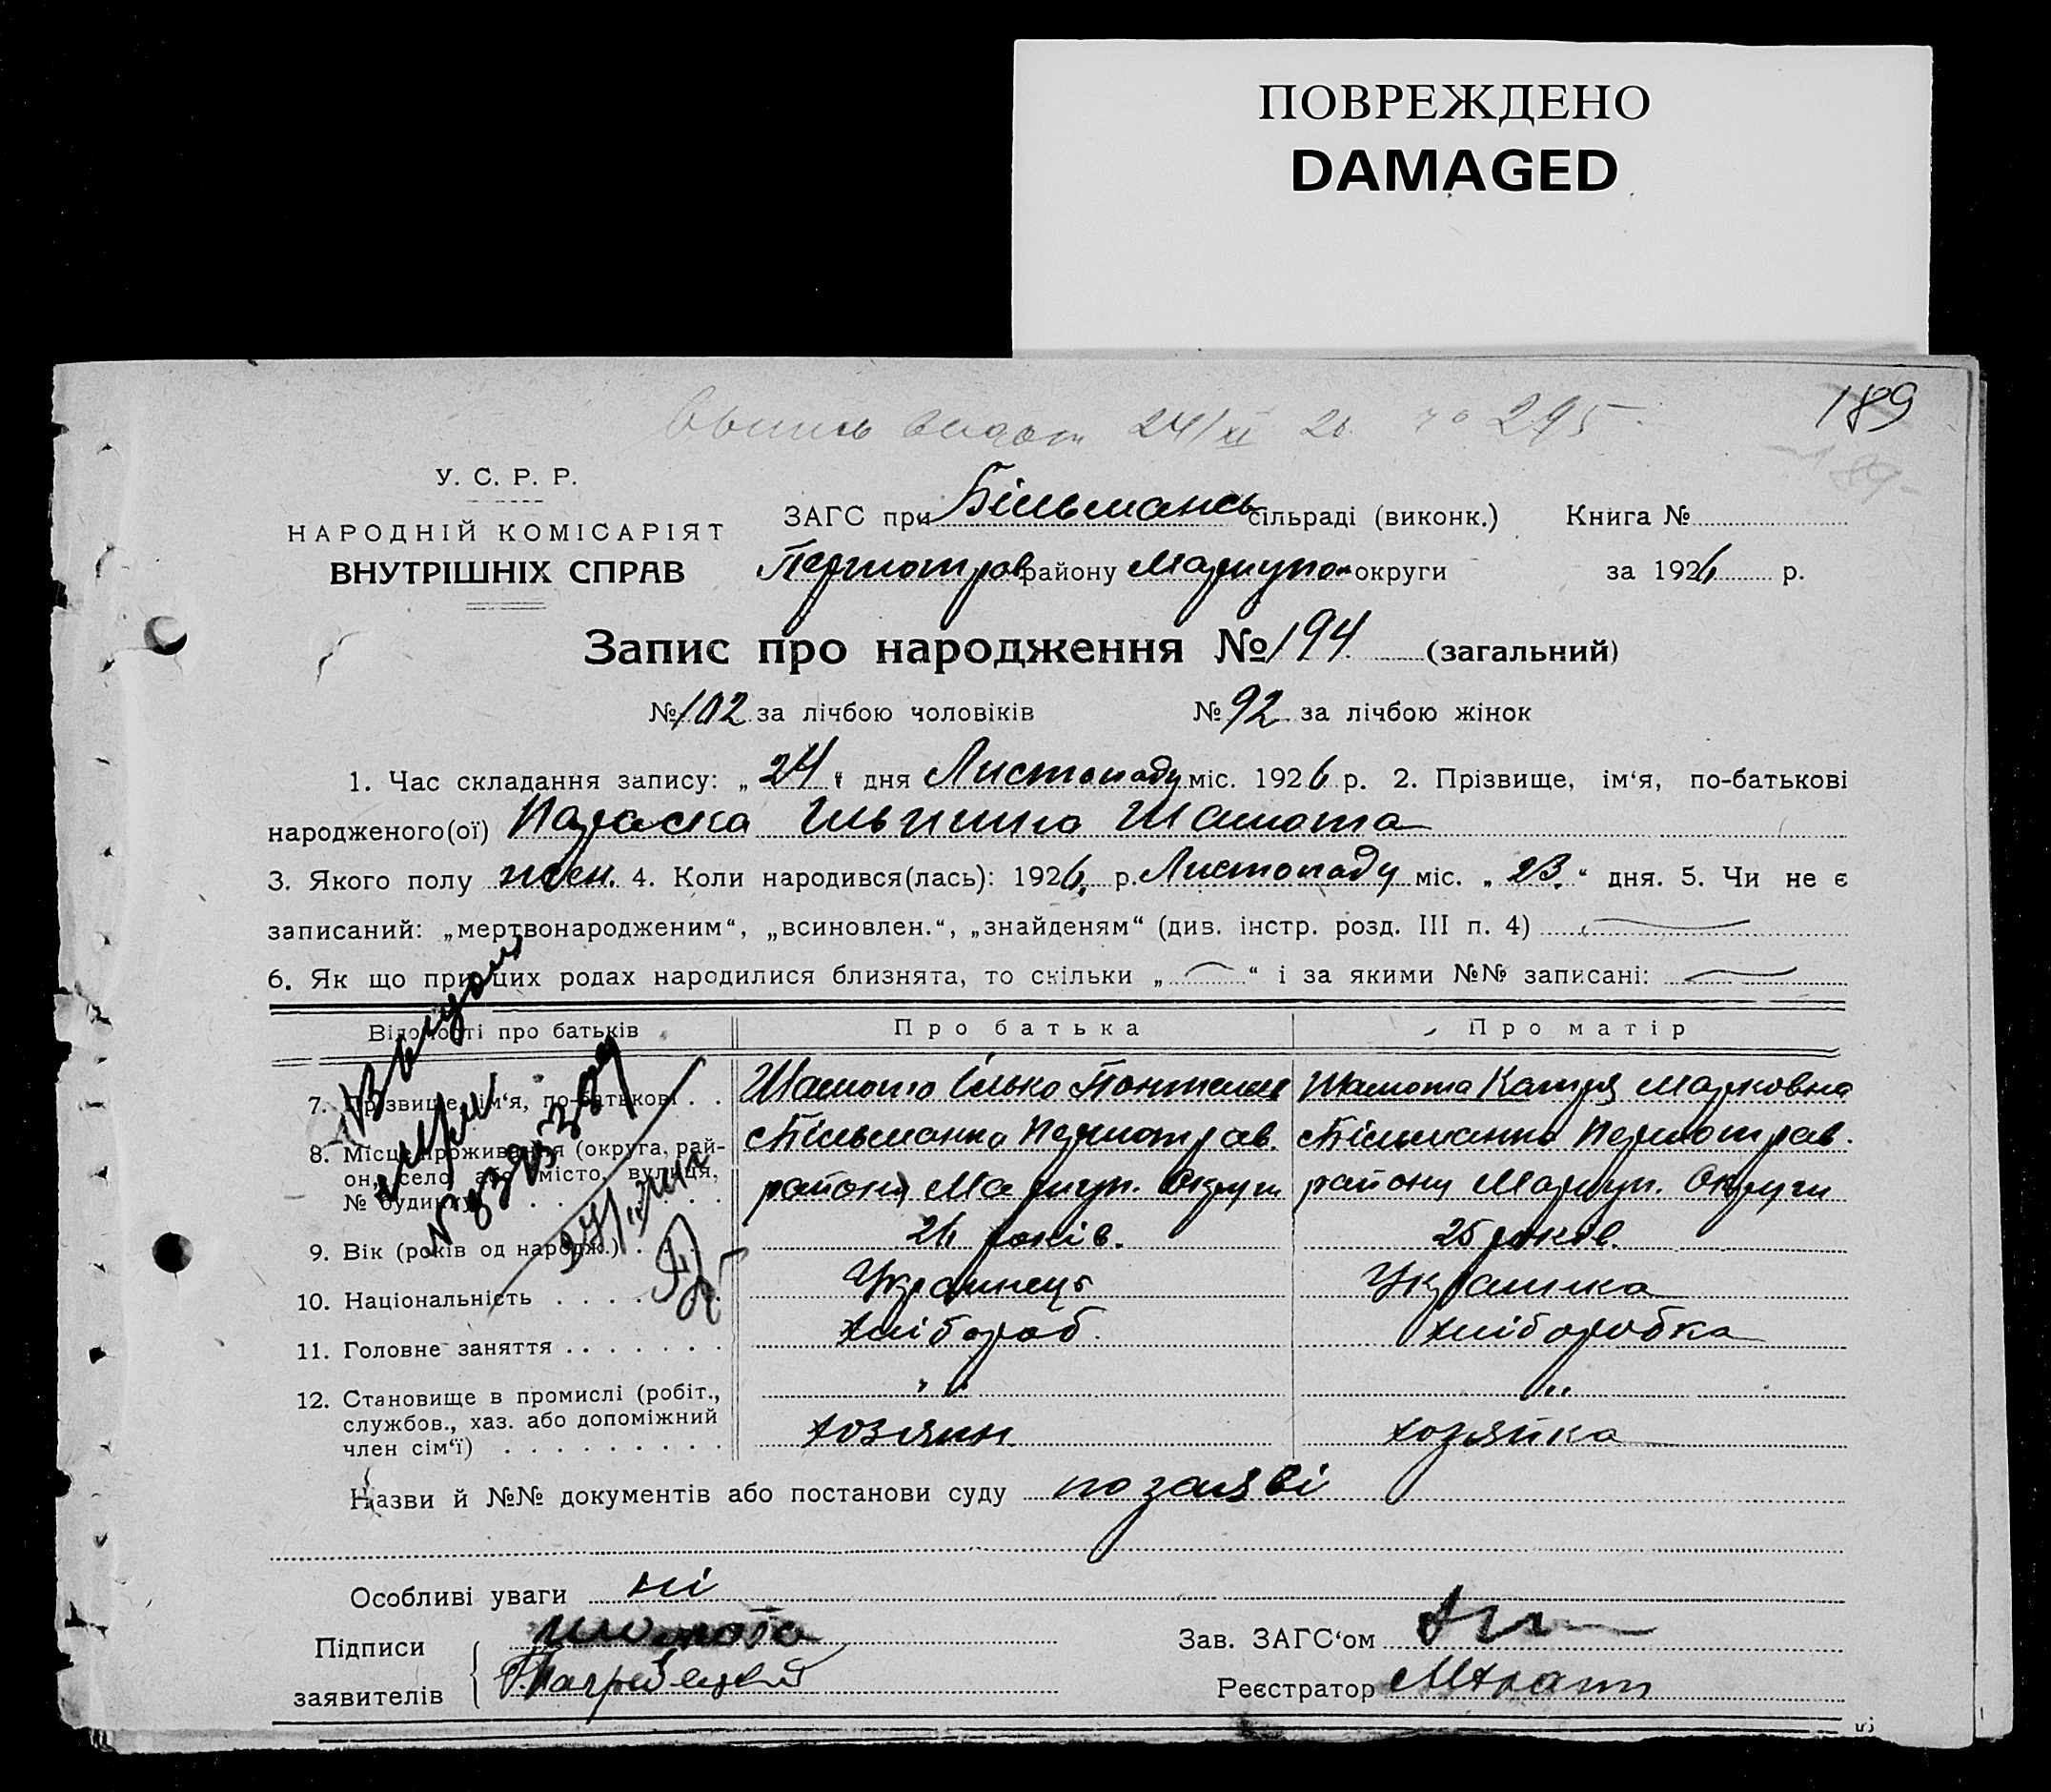 ПОВРЕЖДЕНО
DAMAGED
24/XI 26 295
189
У. С. Р. Р.
НАРОДНІЙ КОМІСАРІЯТ
ВНУТРІШНІХ СПРАВ
ЗАГС при Більмансь сільраді (виконк.) Книга №
району Маріупол округи за 1926 р.
Запис про народження № 194 (загальний)
№ 102 за лічбою чоловіків № 92 за лічбою жінок
1. Час складання запису: „ 24 “ дня Листопаду міс. 1926 р. 2. Прізвище, ім‘я, по-батькові
народженого(ої) Параска Ильинична Шамота
3. Якого полу жен. 4. Коли народився(лась): 1926 р. Листопаду міс. „ 23 “ дня. 5. Чи не є
записаний: „мертвонародженим“, „всиновлен.“, „знайденям“ (див. інстр. розд. III п. 4)
6. Як що при цих родах народилися близнята, то скільки „ “ і за якими №№ записані:
Відомості про батьків Про батька Про матір
7. Прізвище, ім‘я, по-батькові . . Шамота Ілько Шамота Катря Марковна
8. Місце проживання (округа, рай-
он, село або місто, вулиця,
№ будинку
с Більманка
району Маріуп. Округи
с Більманка
району Маріуп. Округи
9. Вік (років од народж.) . 26 років. 25 років.
10. Національність . . . . Українець Українка
11. Головне заняття . . . . . . . Хлібороб. Хліборобка
12. Становище в промислі (робіт., " " " "
службов., хаз. або допоміжний
член сім‘ї) . . . . . . . . . . хозяин хозяйка
Назви й №№ документів або постанови суду по заяві
Особливі уваги ні
Підписи Шамота Зав. ЗАГС‘ом
заявителів Реєстратор